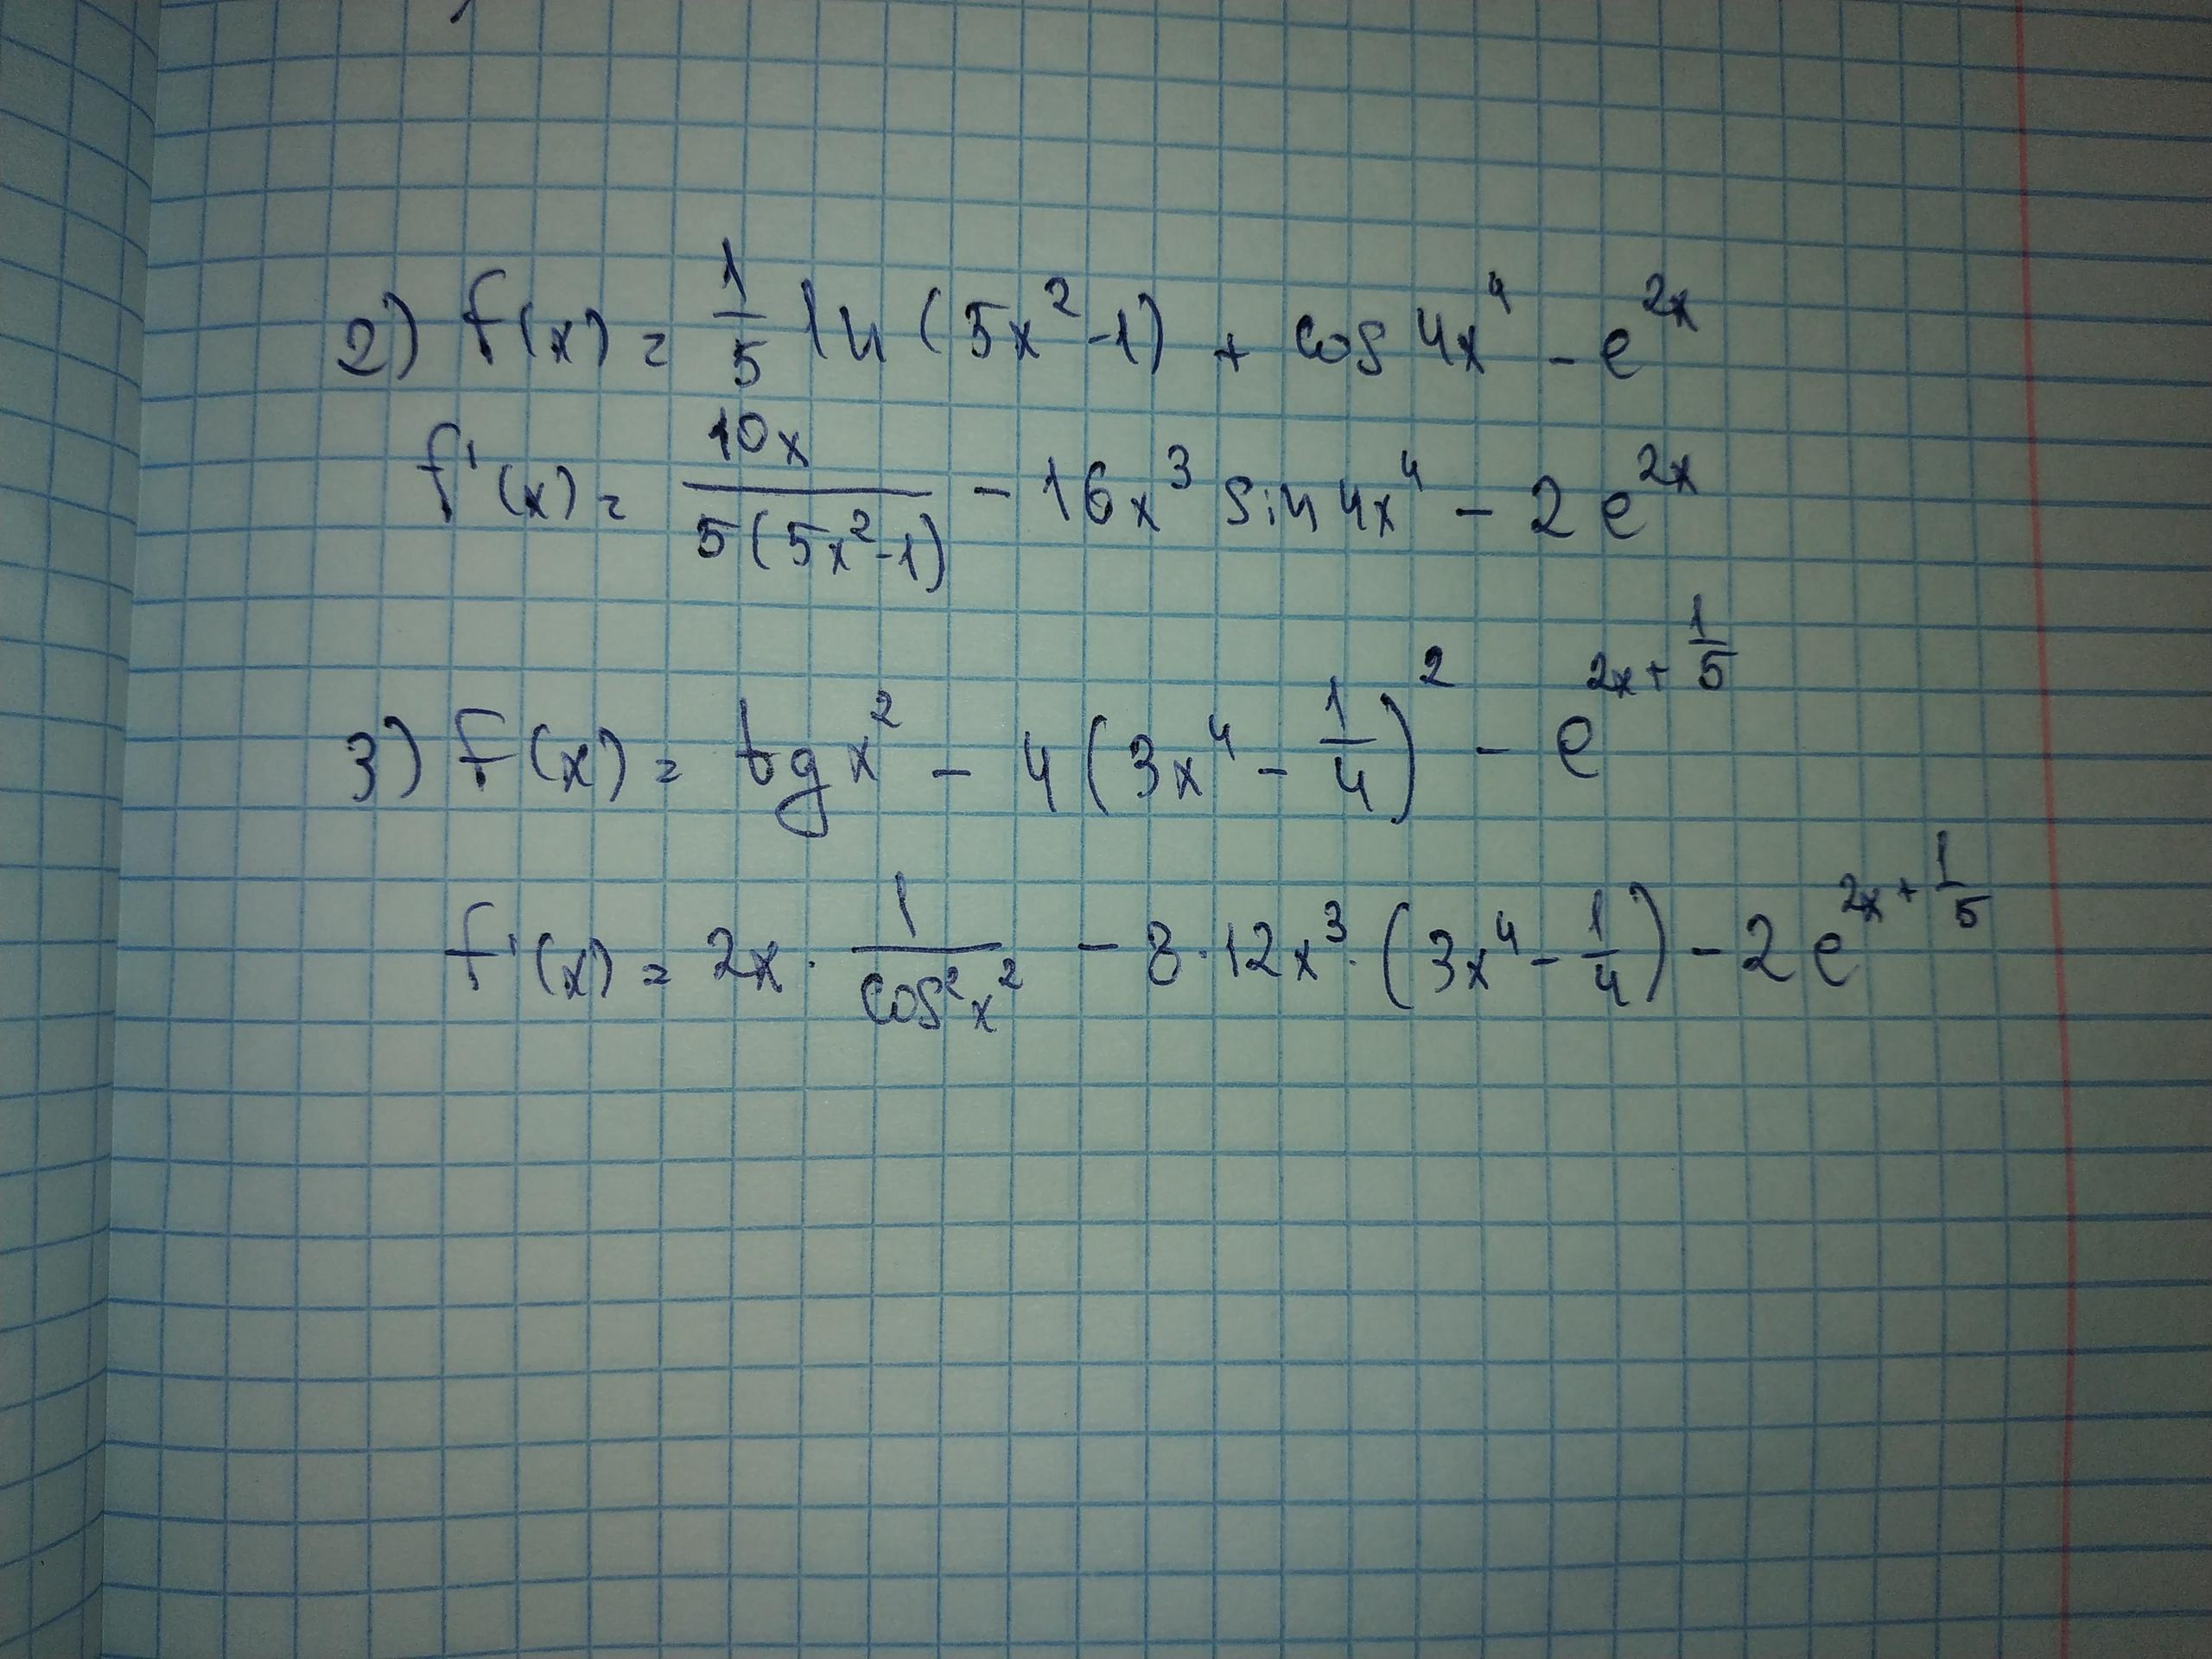 2) f(x) = 1/5 ln(5x² - 1) + cos 4x⁴ - e^(2x)
f'(x) = 10x / 5(5x² - 1) - 16x³ sin 4x⁴ - 2e^(2x)
3) f(x) = tg x² - 4(3x⁴ - 1/4)² - e^(2x + 1/5)
f'(x) = 2x · 1/cos²x² - 8 · 12x³ · (3x⁴ - 1/4) - 2e^(2x + 1/5)